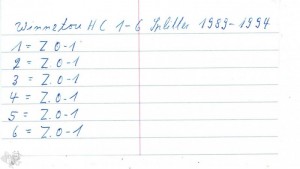 Winnetou HC 1-6 Splitter 1989-1994
1 = Z. 0-1
2 = Z. 0-1
3 = Z. 0-1
4 = Z. 0-1
5 = Z. 0-1
6 = Z. 0-1